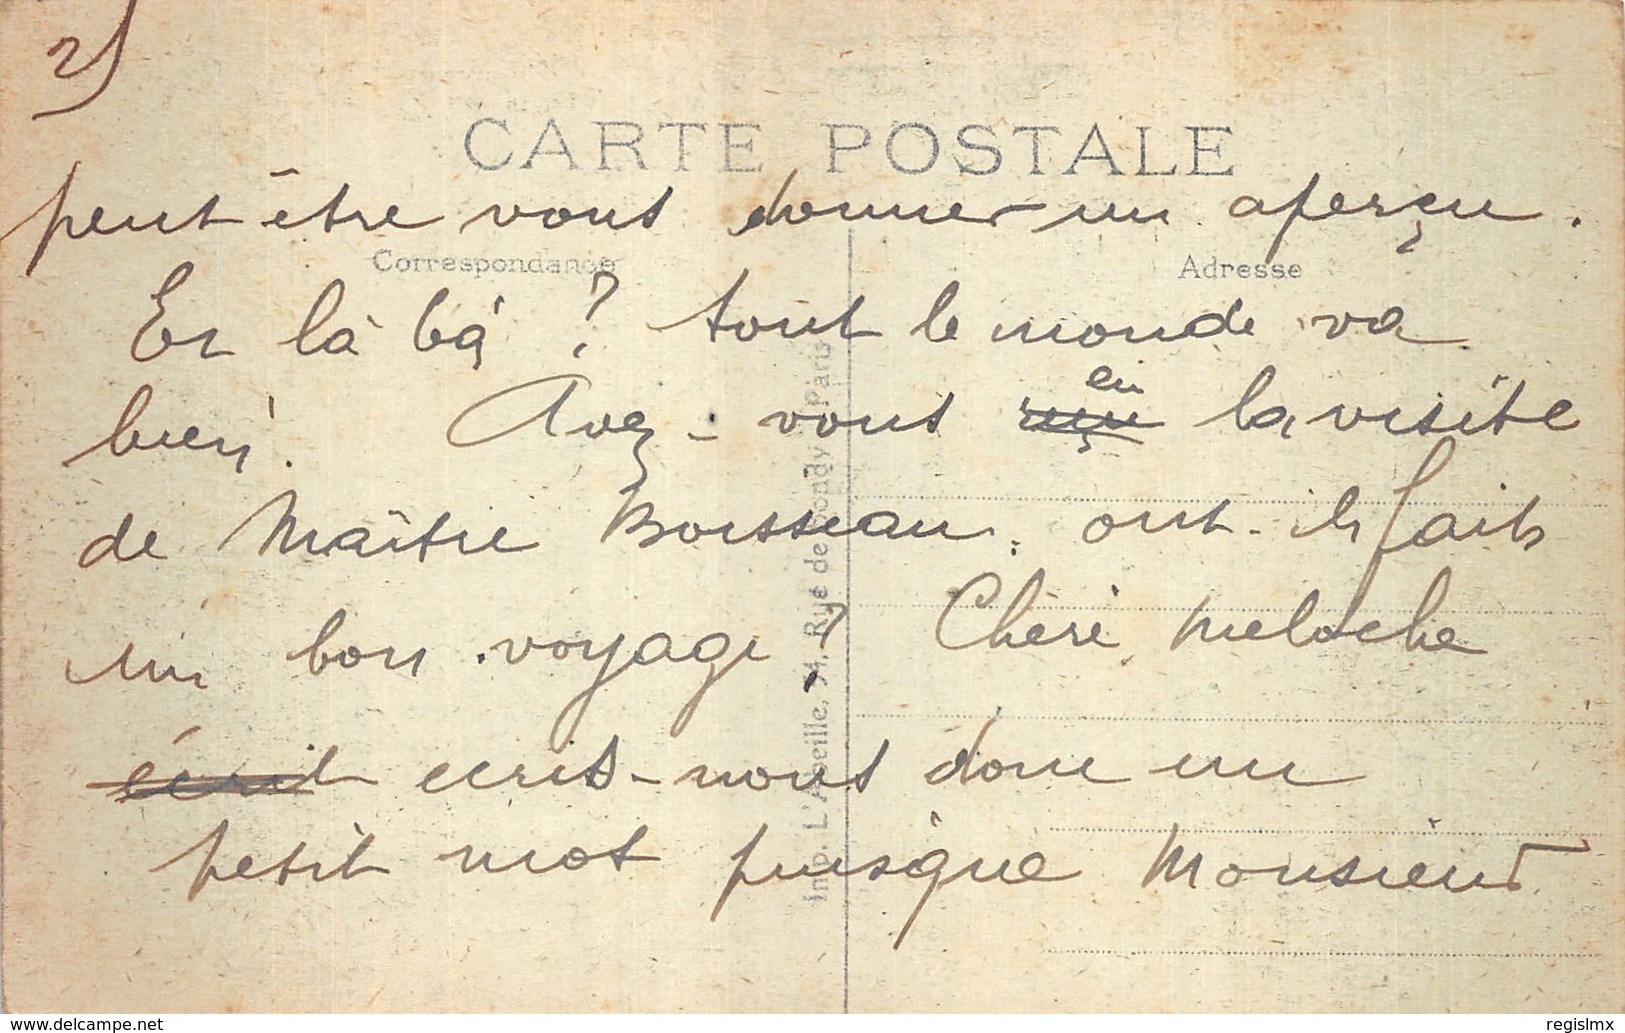 2)
CARTE POSTALE
peut être vous donner un aperçu.
Correspondance
Adresse
Et là bà ? tout le monde va
bien. Avez-vous ~~reçu~~ eu la visite
de Maître Boisseau. ont-ils faits
un bon voyage ? Chéri Meloche
~~écrit~~ ecris-nous donc un
petit mot puisque Monsieur
Imp. L'Abeille, 54, Rue de Bondy Paris
delcampe.net
regislmx